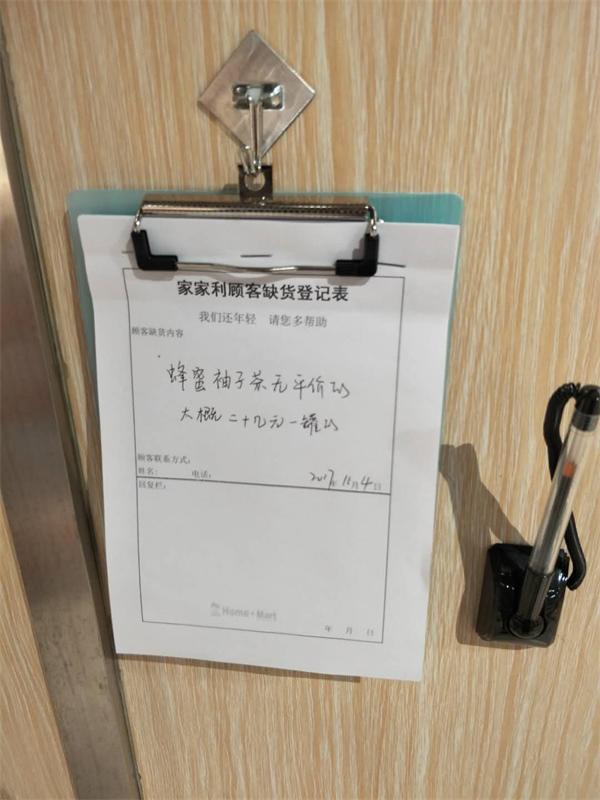 家家利顾客缺货登记表
我们还年轻 请您多帮助
顾客缺货内容
蜂蜜柚子茶无平价的
大概二十几元一罐的
顾客联系方式:
姓名: 电话: 2017年11月4日
回复栏:
Home+Mart
年 月 日